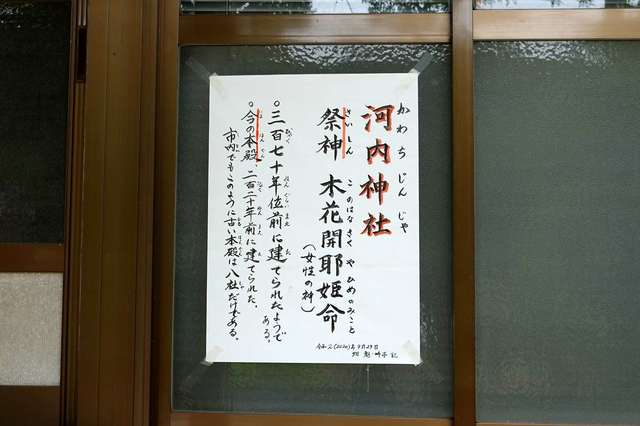 河内神社
かわちじんじゃ
祭神 木花開耶姫命
さいしん このはなさくやひめのみこと
(女性の神)
○三百七十年位前に建てられたようである。
○今の本殿、二百二十年前に建てられた。
市内でもこのように古い本殿は八社だけである。
令和2(2020)年9月29日